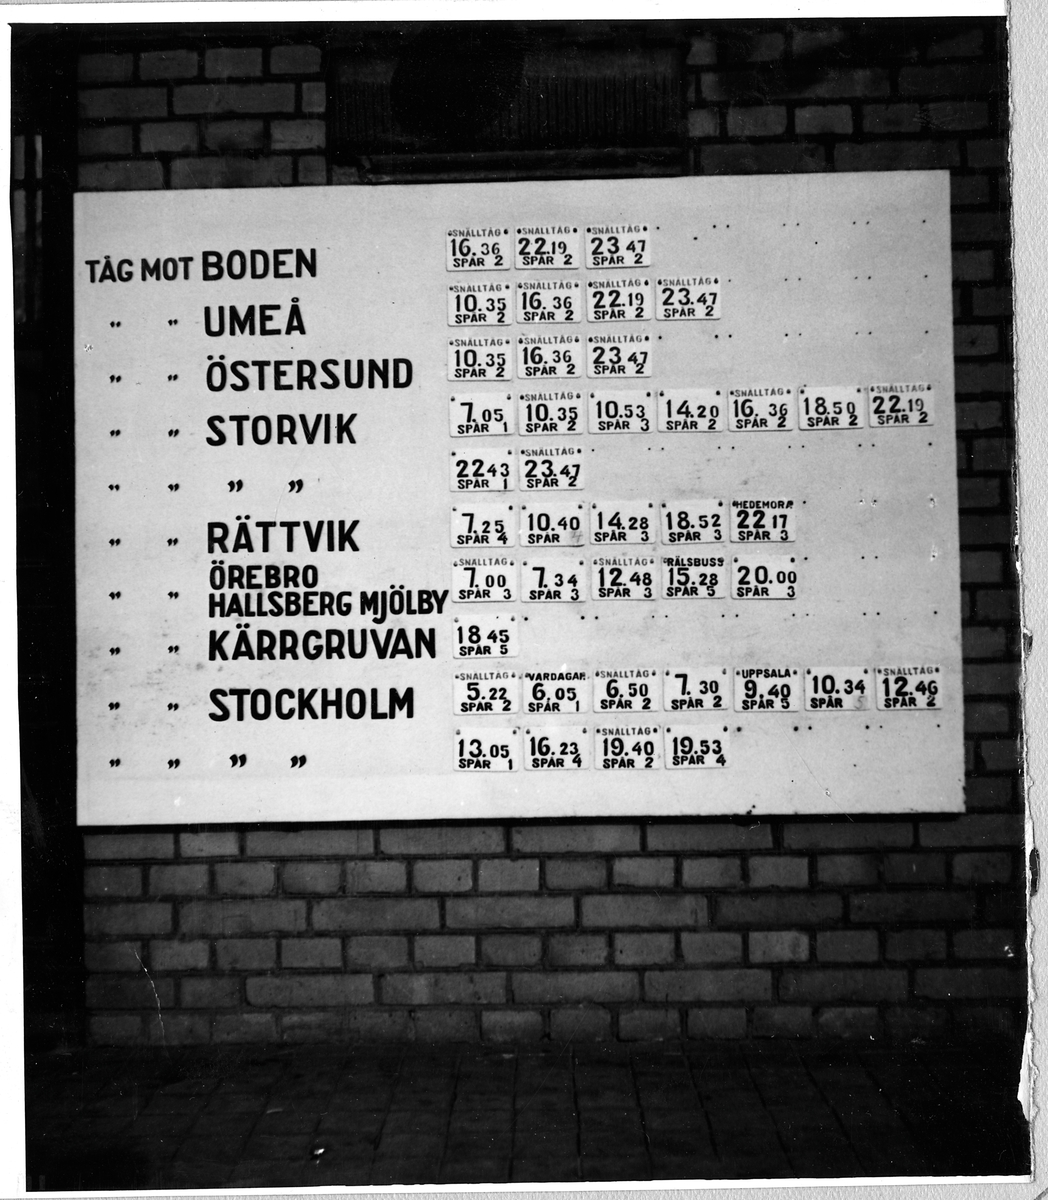 SNÄLLTÅG SNÄLLTÅG SNÄLLTÅG
TÅG MOT BODEN 16.36 22.19 23 47
SPÅR 2 SPÅR 2 SPÅR 2
SNÄLLTÅG SNÄLLTÅG SNÄLLTÅG SNÄLLTÅG
" " UMEÅ 10.35 16.36 22.19 23.47
SPÅR 2 SPÅR 2 SPÅR 2 SPÅR 2
SNÄLLTÅG SNÄLLTÅG SNÄLLTÅG
" " ÖSTERSUND 10.35 16.36 23 47
SPÅR 2 SPÅR 2 SPÅR 2
SNÄLLTÅG SNÄLLTÅG SNÄLLTÅG
" " STORVIK 7.05 10.35 10.53 14.20 16.36 18.50 22.19
SPÅR 1 SPÅR 2 SPÅR 3 SPÅR 2 SPÅR 2 SPÅR 2 SPÅR 2
SNÄLLTÅG
" " " " 22 43 23.47
SPÅR 1 SPÅR 2
HEDEMORA
" " RÄTTVIK 7.25 10.40 14.28 18.52 22 17
SPÅR 4 SPÅR 4 SPÅR 3 SPÅR 3 SPÅR 3
SNÄLLTÅG SNÄLLTÅG RÄLSBUSS
ÖREBRO 7.00 7.34 12.48 15.28 20.00
" " HALLSBERG MJÖLBY SPÅR 3 SPÅR 3 SPÅR 3 SPÅR 5 SPÅR 3
" " KÄRRGRUVAN 18 45
SPÅR 5
SNÄLLTÅG VARDAGAR SNÄLLTÅG UPPSALA SNÄLLTÅG
" " STOCKHOLM 5.22 6.05 6.50 7.30 9.40 10.34 12.46
SPÅR 2 SPÅR 1 SPÅR 2 SPÅR 2 SPÅR 5 SPÅR 5 SPÅR 2
SNÄLLTÅG
" " " " 13.05 16.23 19.40 19.53
SPÅR 1 SPÅR 4 SPÅR 2 SPÅR 4